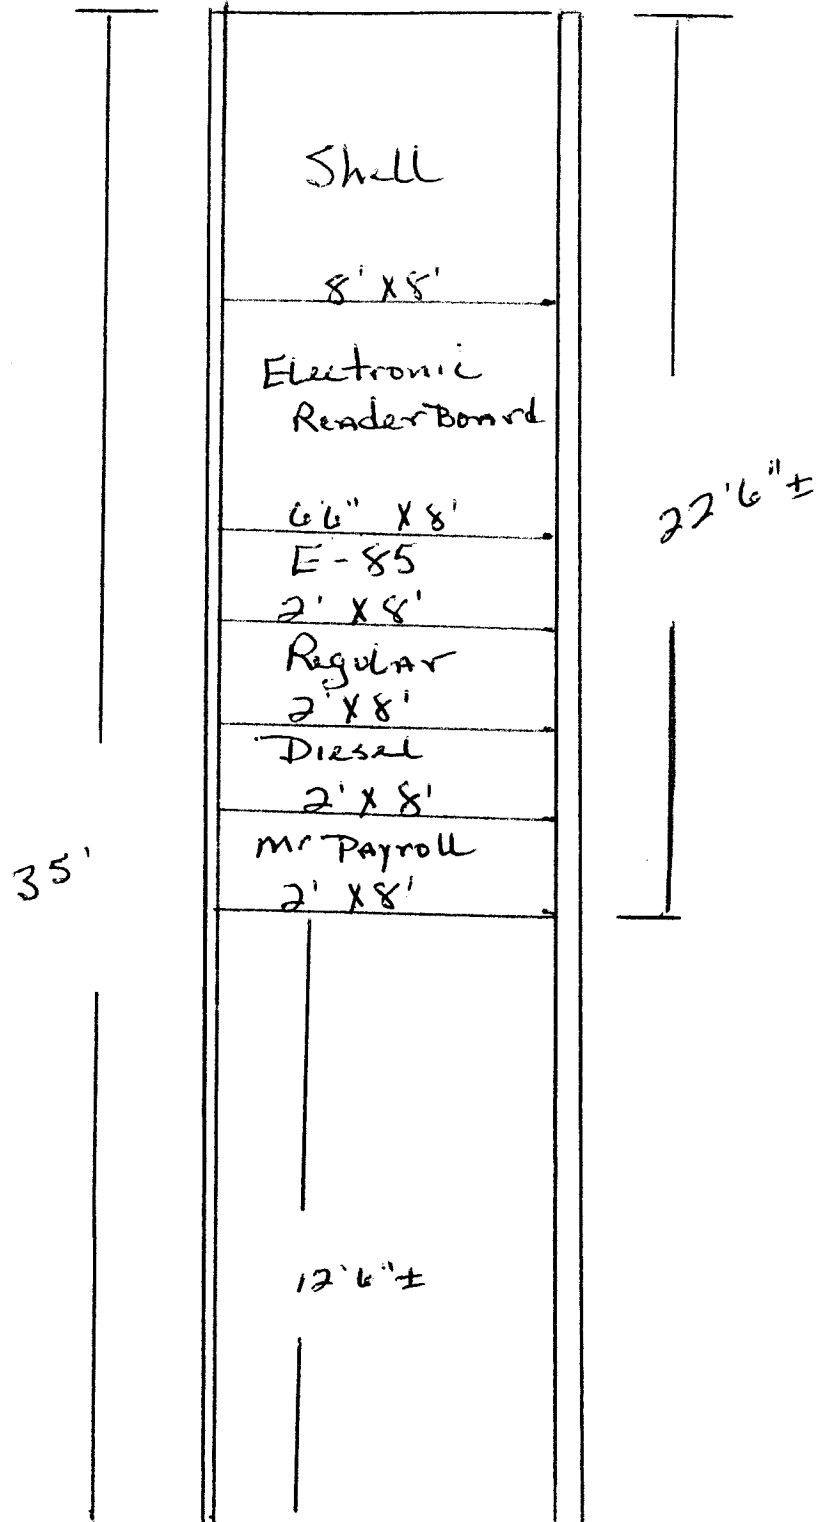 Shell
8' X 8'
Electronic
ReaderBoard
6'6" X 8'
E-85
2' X 8'
Regular
2' X 8'
Diesel
2' X 8'
Mr Payroll
2' X 8'
22'6"±
35'
12'6"±